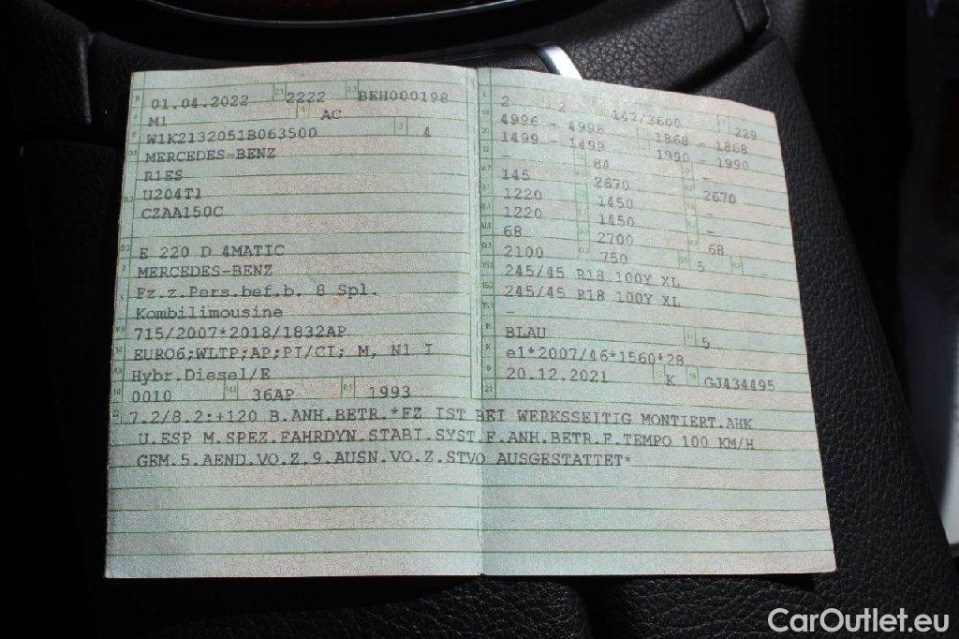 01.04.2022 2222 BEH000198
M1 AC
W1K2132051B063500 4
MERCEDES-BENZ
R1ES
U204T1
CZAA150C
E 220 D 4MATIC
MERCEDES-BENZ
Fz.z.Pers.bef.b. 8 Spl.
Kombilimousine
715/2007*2018/1832AP
EURO6;WLTP;AP;PI/CI; M, N1 I
Hybr.Diesel/E
0010 36AP 1993
2 2 147/3600 229
4996 - 4996 1868 - 1868
1499 - 1499 1990 - 1990
- 84 -
145 2670 2670
1220 1450 -
1220 1450 -
68 2700 68
2100 750 5 -
245/45 R18 100Y XL
245/45 R18 100Y XL
-
BLAU 5
e1*2007/46*1560*28
20.12.2021 K GJ434495
7.2/8.2:+120 B.ANH.BETR.*FZ IST BEI WERKSSEITIG MONTIERT.AHK
U.ESP M.SPEZ.FAHRDYN.STABI.SYST.F.ANH.BETR.F.TEMPO 100 KM/H
GEM.5.AEND.VO.Z.9.AUSN.VO.Z.STVO AUSGESTATTET*
CarOutlet.eu